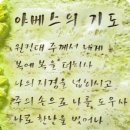 야베스의 기도
원컨대 주께서 내게
복에 복을 더하사
나의 지경을 넓히시고
주의 손으로 나를 도우사
나로 환난을 벗어나